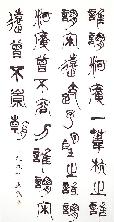 誰謂河廣一葦杭之誰
謂宋遠跂予望之誰謂
河廣曾不容刀誰謂宋
遠曾不崇朝